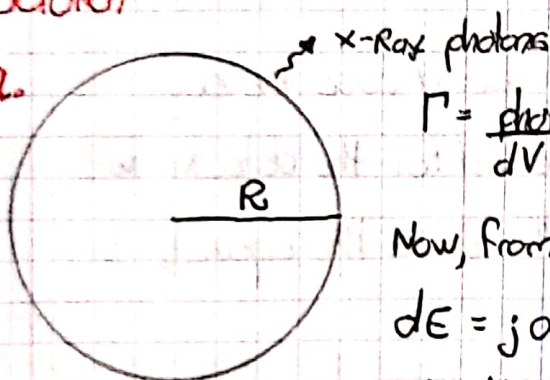 x-Ray photons
R
Γ =
dV
Now, from
dE = j